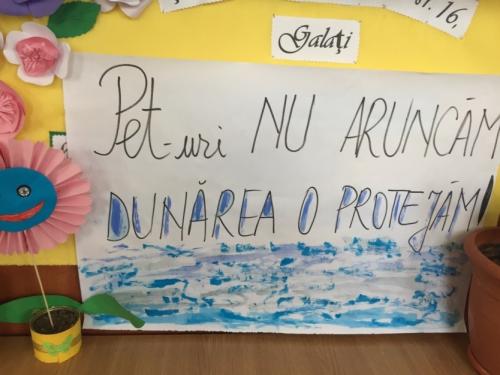 16,
Galați
Pet-uri NU ARUNCĂM
DUNĂREA O PROTEJĂM!